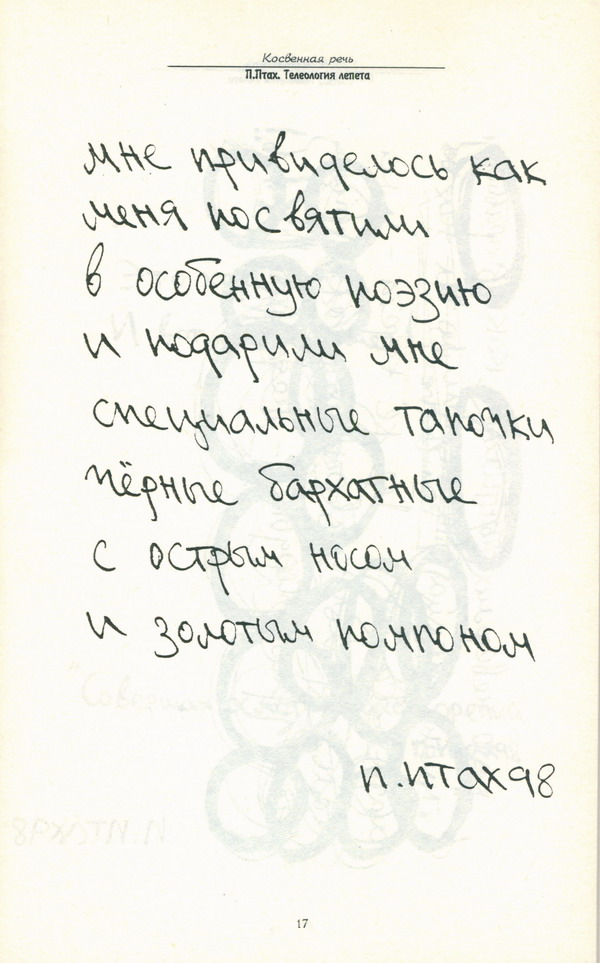 Косвенная речь
П.Птах. Телеология лепета
мне привиделось как
меня посвятили
в особенную поэзию
и подарили мне
специальные тапочки
чёрные бархатные
с острым носом
и золотым помпоном
п.птах98
17